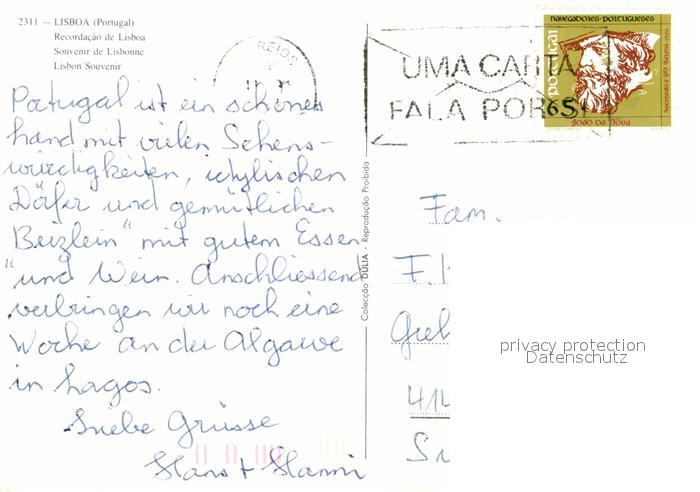 2311 — LISBOA (Portugal)
Recordação de Lisboa
Souvenir de Lisbonne
Lisbon Souvenir
Portugal ist ein schönes
Land mit vielen Sehens-
würdigkeiten, idylischen
Dörfer und gemütlichen
Beizlein" mit gutem Essen
"und Wein. Anschliessend
verbringen wir noch eine
Woche an der Algarve
in Lagos.
Liebe Grüsse
Hans + Hanni
Colecção DÚLIA - Reprodução Proibida
REIOS
UMA CARTA
FALA POR SI
NAVEGADORES PORTUGUESES
PORTUGAL
65
JOÃO DA NOVA
Fam.
F.
414
privacy protection
Datenschutz